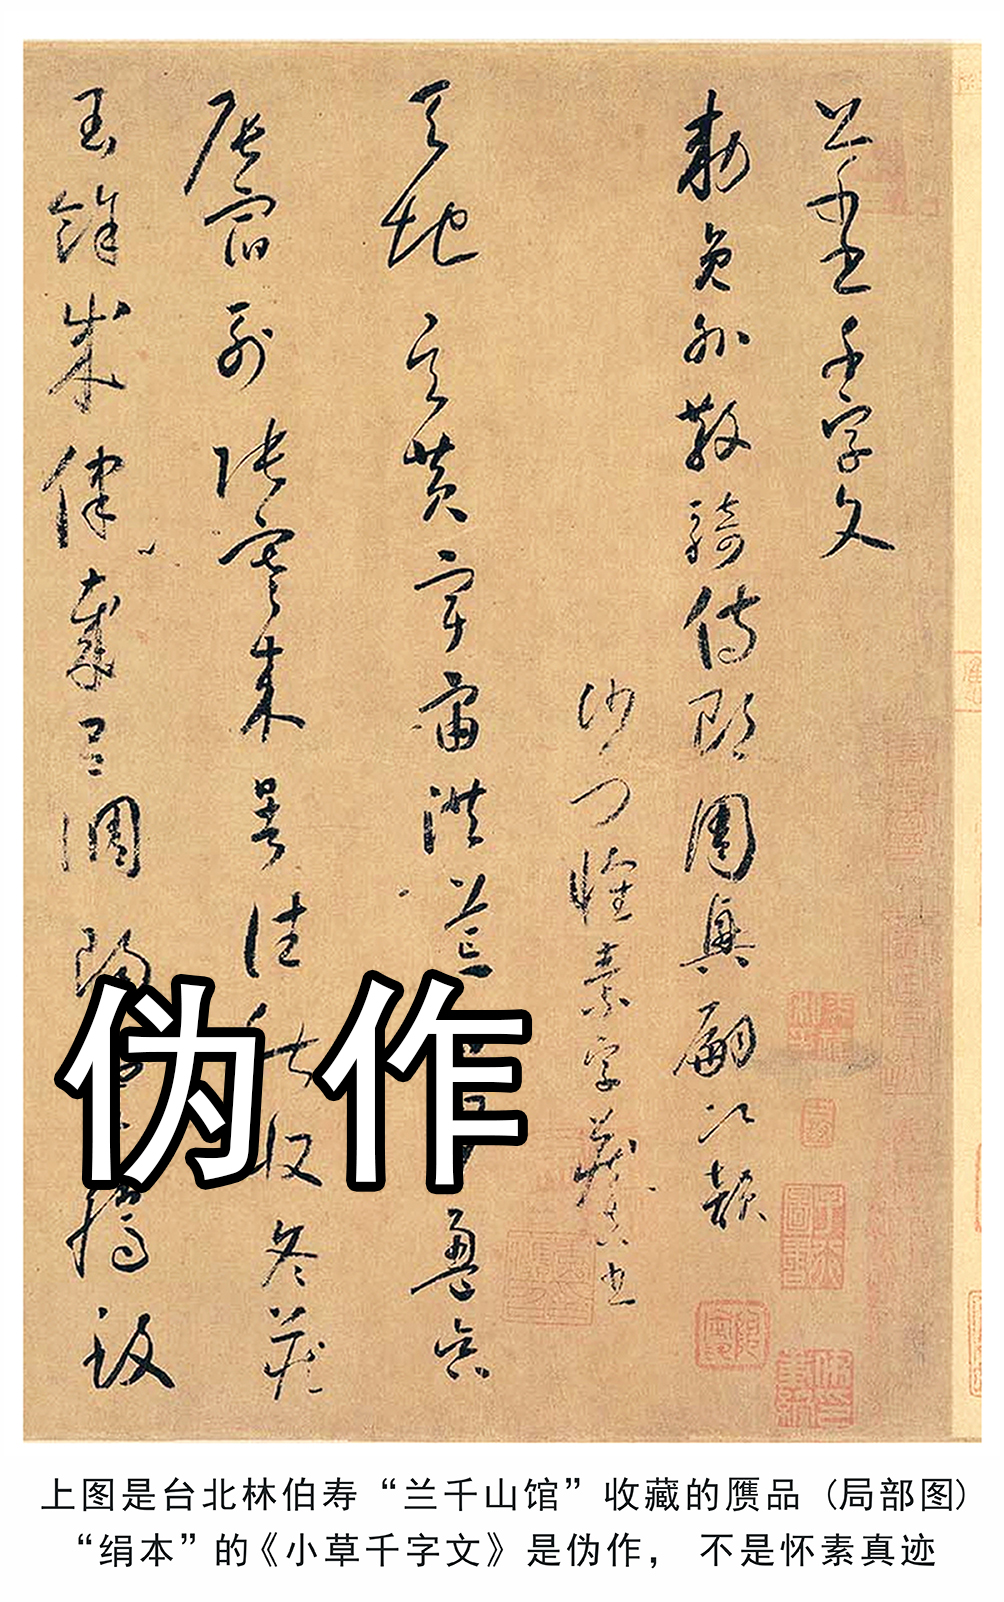 千字文
敕員外散騎侍郎周興嗣次韻
沙門懷素字藏真書
天地玄黃宇宙洪荒日月盈昃
辰宿列張寒來暑往秋收冬藏
餘成律歲呂調陽雲騰致
伪作
上图是台北林伯寿“兰千山馆”收藏的赝品（局部图）
“绢本”的《小草千字文》是伪作， 不是怀素真迹